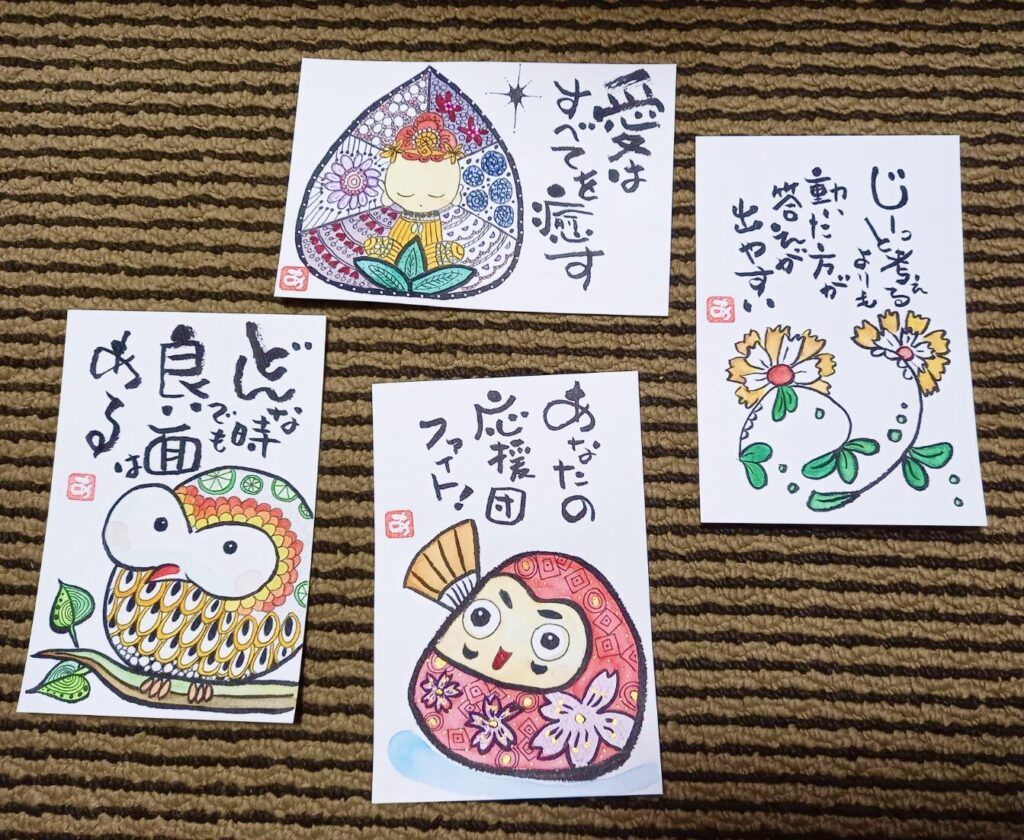 愛は
すべてを
癒す
じーっと考える
よりも
動いた方が
答えが
出やすい
どんな時
でも
良い面は
ある
あなたの
応援団
ファイト！